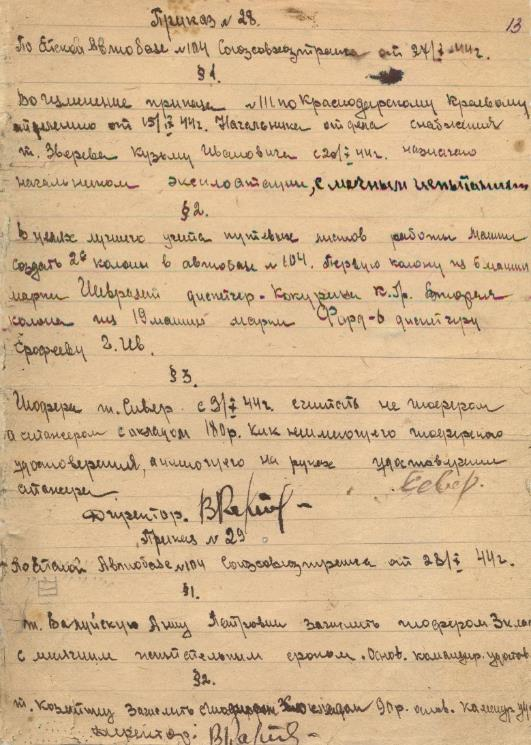 Приказ № 28.
13
По Ейской Автобазе №104 Союзсовхозтранса от 27/X 44г.
§ 1.
Во изменение приказа № 111 по Краснодарскому Краевому
отделению от 15/IX 44г. Начальника отдела снабжения
т. Зверева Кузьму Ивановича с 20/X 44г. назначаю
начальником эксплоатации, с мечным испытанием
§ 2.
В целях лучшего учета путевых листов работы машин
создать 2е колоны в автобазе №104. Первую колону из 6 машин
марки Шевролет диспетчер - Кокурина К. Гр. Вторая
колона из 19 машин марки Форд-6 диспетчеру
Ерофееву Г. Ив.
§ 3.
Шофера т. Сивер с 3/X 44г. считать не шофером
а стажером с окладом 180р. как неимеющего шоферского
удостоверения, а имеющего на руках удостоверении
стажера
Директор.
Приказ № 29
По Ейской Автобазе №104 Союзсовхозтранса от 28/X 44г.
§1.
т. Валуйскую Анну Петровну зачислить шофером 3 клас
с месячным испытательным сроком. Основ. командир. удостов
§2.
т. Козлитину зачислить окладом 90р. основ.
Директор.